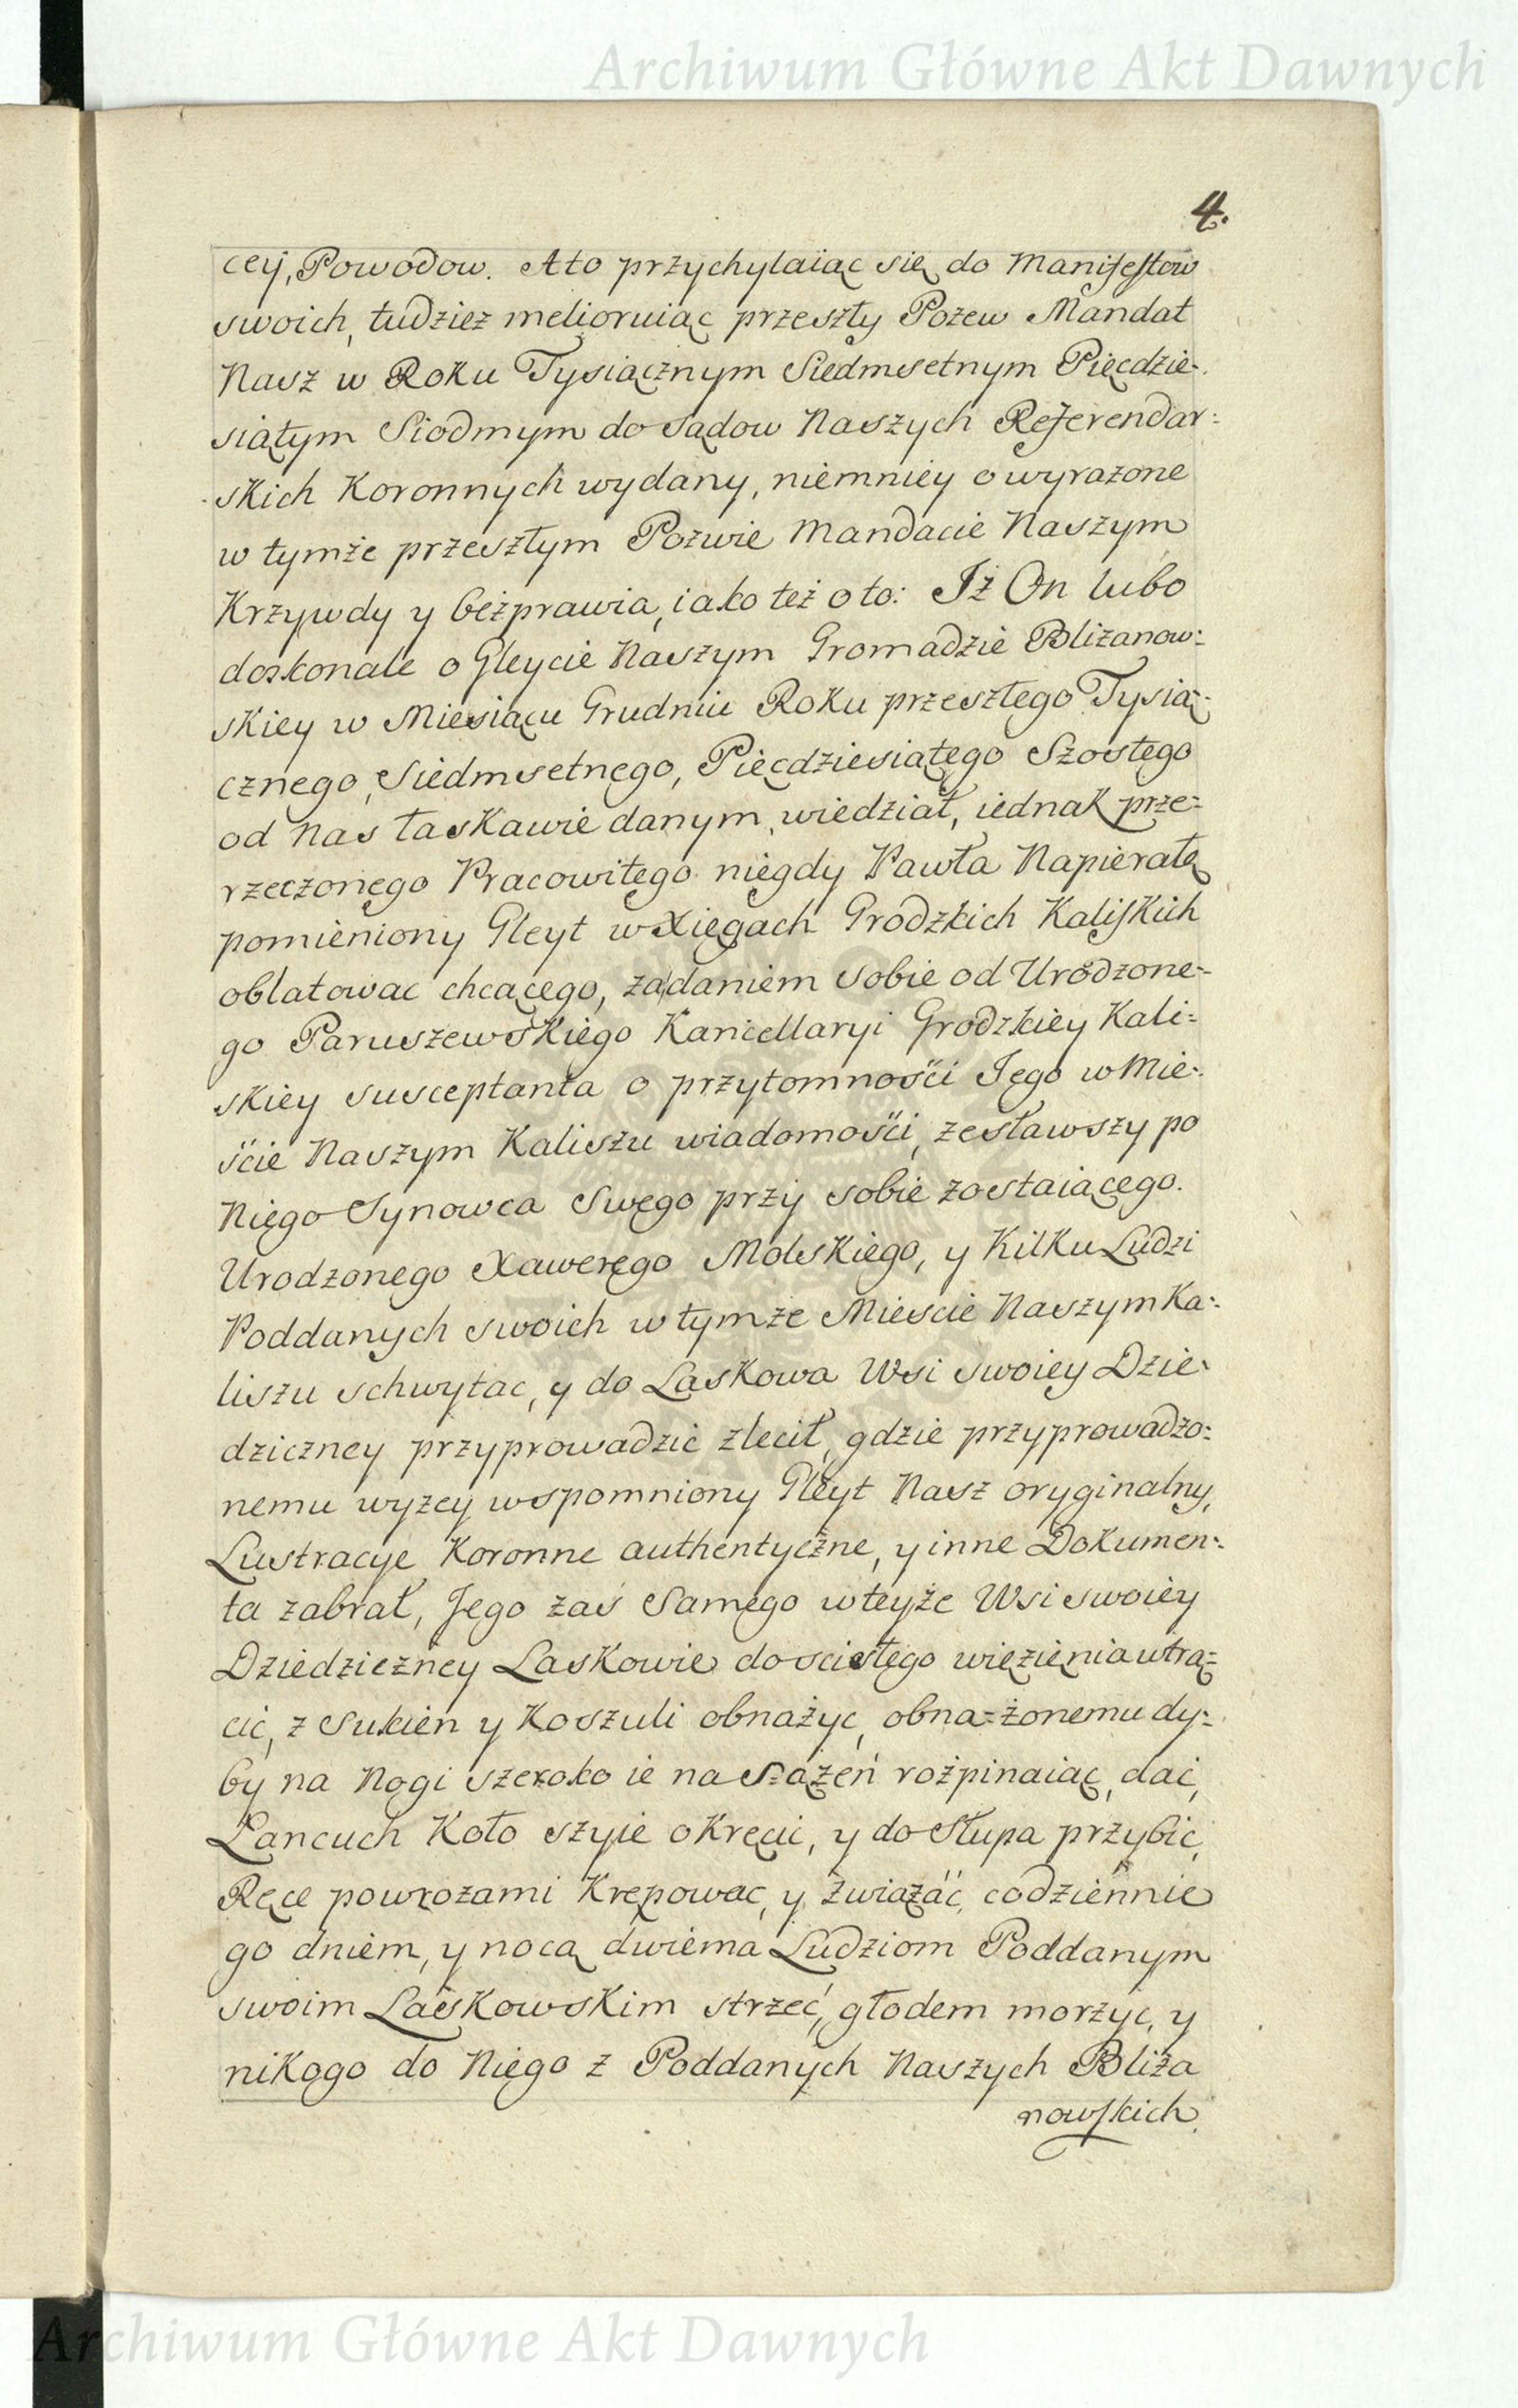 Archiwum Główne Akt Dawnych
4.
cey, Powodow. A to przychylaiąc się do Manifestow
swoich, tudzież melioruiąc przeszły Pozew Mandat
Nasz w Roku Tysiącznym Siedmsetnym Pięcdzie-
siątym Siodmym do Sądow Naszych Referendar-
skich Koronnych wydany, niemniey o wyrażone
w tymże przeszłym Pozwie Mandacie Naszym
Krzywdy y bezprawia, iako też o to: Iż On lubo
doskonale o Gleycie Naszym Gromadzie Blizanow-
skiey w Miesiącu Grudniu Roku przeszłego Tysią-
cznego, Siedmsetnego, Pięcdziesiątego Szostego
od Nas łaskawie danym, wiedział, iednak prze-
rzeczonego Pracowitego niegdy Pawła Napierałę
pomieniony Gleyt w Xięgach Grodzkich Kaliskich
oblatowac chcącego, za daniem sobie od Urodzone-
go Paruszewskiego Kancellaryi Grodzkiey Kali-
skiey susceptanta o przytomności Iego w Mie-
ście Naszym Kaliszu wiadomości, zesławszy po
Niego Synowca Swego przy sobie zostaiącego.
Urodzonego Xawerego Molskiego, y Kilku Ludzi
Poddanych swoich w tymże Mieście Naszym Ka-
liszu schwytac, y do Laskowa Wsi swoiey Dzie-
dziczney przyprowadzić zlecił, gdzie przyprowadzo-
nemu wyżey wspomniony Gleyt Nasz oryginalny,
Lustracye Koronne authentyczne, y inne Dokumen-
ta zabrał, Jego zaś Samego w teyże Wsi swoiey
Dziedziczney Laskowie do scisłego więzienia wtrą-
cić, z Sukien y Koszuli obnażyć, obna=żonemu dy-
by na Nogi szeroko ie na Sążeń rozpinaiąc, dać,
Łancuch Koło szyie okręcic, y do Słupa przybić,
Ręce powrozami Krępowac, y związać, codziennie
go dniem, y nocą dwiema Ludziom Poddanym
swoim Laskowskim strzeć, głodem morzyc, y
nikogo do Niego z Poddanych Naszych Bliża
nowskich
Archiwum Główne Akt Dawnych